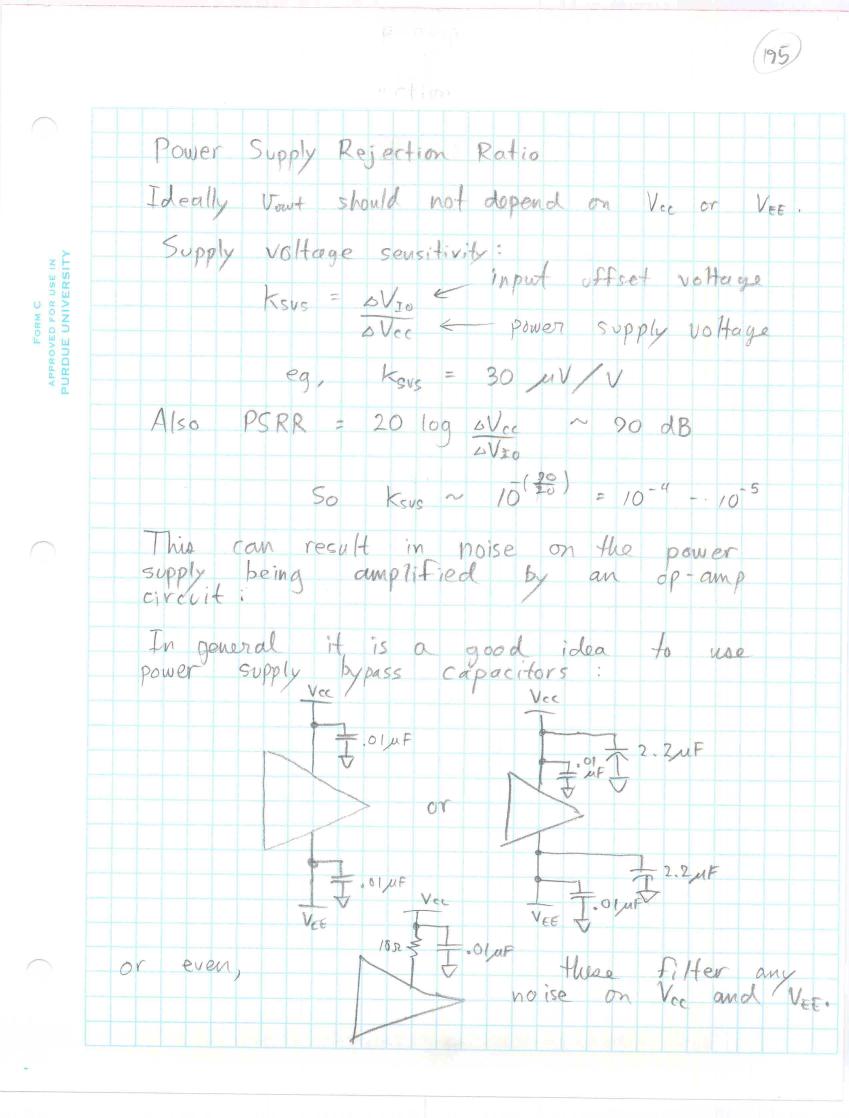 195
FORM C
APPROVED FOR USE IN
PURDUE UNIVERSITY
Power Supply Rejection Ratio
Ideally Vout should not depend on Vcc or VEE.
Supply voltage sensitivity:
kSVS = ΔVIO ← input offset voltage
ΔVCC ← power supply voltage
eg, kSVS = 30 μV/V
Also PSRR = 20 log ΔVCC / ΔVIO ~ 90 dB
So kSVS ~ 10^-(90/20) = 10^-4 -- 10^-5
This can result in noise on the power
supply being amplified by an op-amp
circuit:
In general it is a good idea to use
power supply bypass capacitors:
Vcc
.01μF
.01μF
VEE
or
Vcc
2.2μF
.01
μF
2.2μF
.01μF
VEE
or even,
Vcc
10Ω
.01μF
these filter any
noise on Vcc and VEE.